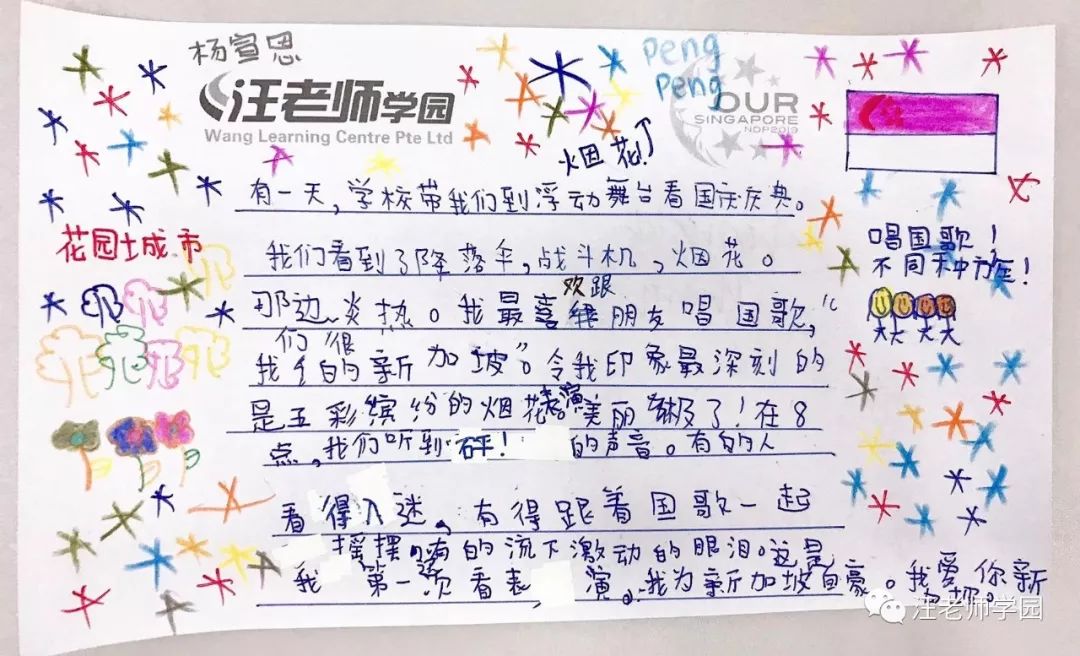 杨宣思
peng
peng
汪老师学园
Wang Learning Centre Pte Ltd
OUR
SINGAPORE
NDP2019
烟花!
有一天,学校带我们到浮动舞台看国庆庆典。
花园城市
唱国歌!
不同种族!
我们看到了降落伞,战斗机、烟花。
欢跟
那边炎热。我最喜 朋友唱国歌,“
们 很
我 的新加坡”。令我印象最深刻的
是五彩缤纷的烟花表演。美丽极了!在8
点,我们听到“砰! 的声音。有的人
看得入迷,有得跟着国歌一起
摇摆, 的流下激动的眼泪。这是
我第一次看表演。我为新加坡自豪。我爱你新
加坡。
汪老师学园